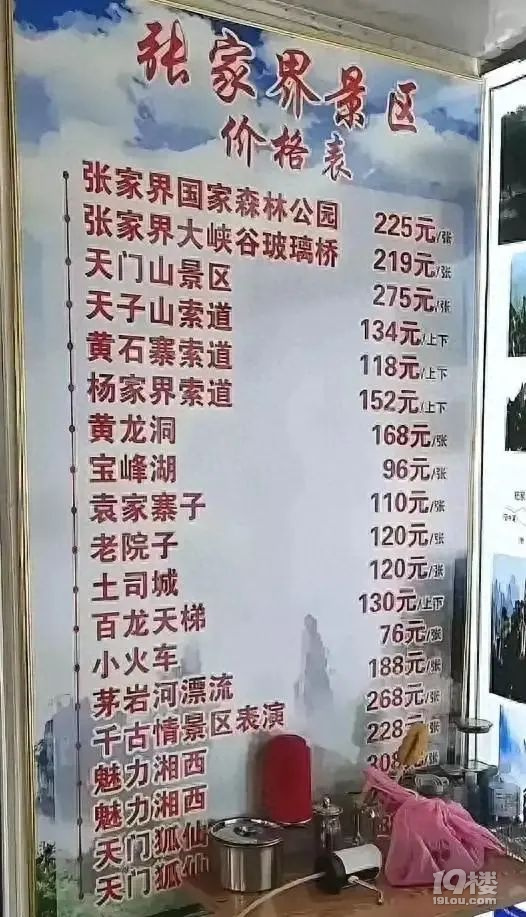 张家界景区
价格表
张家界国家森林公园 225元/张
张家界大峡谷玻璃桥 219元/张
天门山景区 275元/张
天子山索道 134元/上下
黄石寨索道 118元/上下
杨家界索道 152元/上下
黄龙洞 168元/张
宝峰湖 96元/张
袁家寨子 110元/张
老院子 120元/张
土司城 120元/张
百龙天梯 130元/上下
小火车 76元/张
茅岩河漂流 188元/张
千古情景区表演 268元/张
魅力湘西 228元
魅力湘西
天门狐仙
天门狐仙
19楼
19lou.com